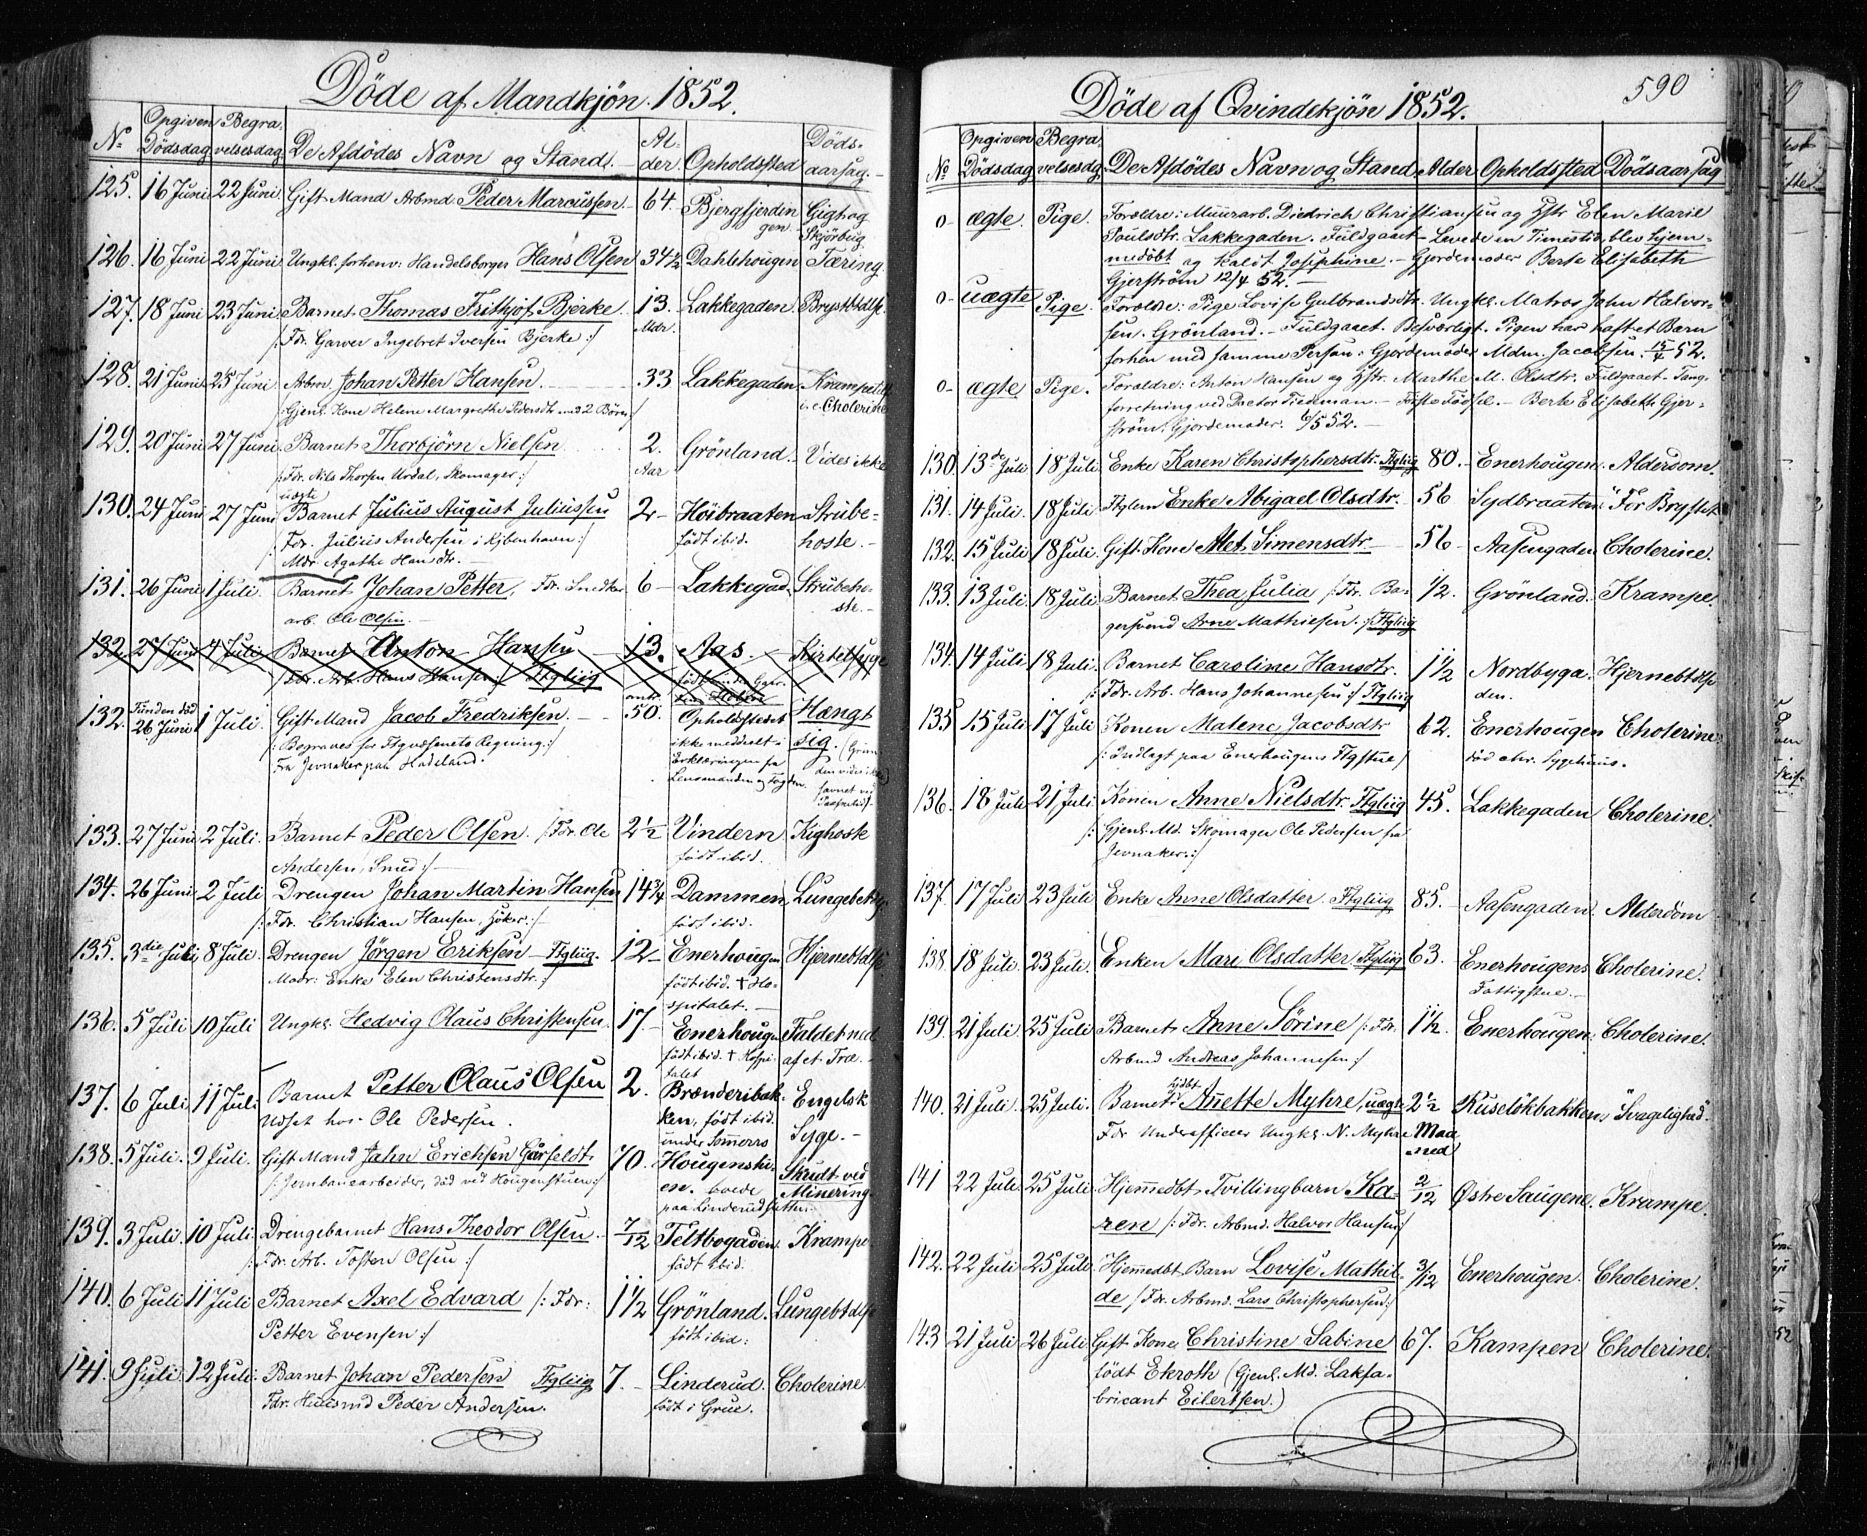 Døde af Mandkjøn 1852.
No Opgiven Dødsdag Begravelsesdag De Afdødes Navn og Stand. Alder. Opholdssted Dødsaarsag.
125. 16 Juni 22 Juni Gift Mand Arbmd Peder Marcussen 64. Bjergfjerdingen Gigt og Skjørbug.
126. 16 Juni 22 Juni Ungkl. forhenv: Handelsborger Hans Olsen 34½ Dahlehougen Tæring.
127. 18 Juni 23 Juni Barnet Thomas Frithjof Bjerke 13. Mdr. Lakkegaden Brystbtdlse.
/: Fdr. Garver Ingebret Iversen Bjerke :/
128. 21 Juni 25 Juni Arbm Johan Petter Hansen 33 Lakkegaden Krampetilf. i. e. Cholerine
/Gjenl. Kone Helene Margrethe Pedersdtr med 2 Børn/
129. 20 Juni 27 Juni Barnet Thorbjørn Nielsen 2. Aar Grønland Vides ikke
/: Fdr. Nils Thorsen Urdal, Skomager :/
130. 24 Juni 27 Juni uægte Barnet Julius August Juliussen 2 Høibraaten født ibid. Strubehoste.
/: Fdr. Julius Andersen i Kjbenhavn :/
Mdr. Agathe Hansdtr.
131. 26 Juni 1 Juli. Barnet Johan Petter, Fdr. Snedker 6 Lakkegad. Strubehoste.
arb. Ole Olsen.
132 27 Juni 4 Juli Barnet Anton Hansen 13. Aas. Kirtelsyge
/Fdr. Arb. Hans Hansen :/ Ftgliig
132. Funden død 26. Juni 1 Juli. Gift Mand Jacob Fredriksen. 50. Opholdsstedet ikke meddelt i Erklæringen fra Lensmanden og Fogden. Hængt sig.
/: Begraves for Ftgvæsenets Regning :/
Fra Jevnaker paa Hadeland.
133. 27 Juni 2 Juli. Barnet Peder Olsen. /: Fdr. Ole 2½ Vindern født ibid. Kighoste
Andersen, Smed :/
134. 26 Juni 2 Juli Drengen Johan Martin Hansen 14¾ Dammen, født ibid. Lungebtdlse
/: Fdr. Christian Hansen, :/
135. 3die Juli, 8 Juli. Drengen Jørgen Eriksen Ftgliig. 12 Enerhougen født ibid. † Hospitalet. Hjernebtdlse
Modr: Enke Elen Christensdtr. :/
136. 5 Juli 10 Juli Ungkl. Hedvig Olaus Christensen. 17. Enerhougen født ibid. † Hospitalet Faldet ned af et Træ.
137. 6 Juli 11 Juli Barnet Petter Olaus Olsen 2. Brænderibakken, født ibid. Engelsk Syge.
Udsat hos Ole Pedersen.
138. 5 Juli. 9 Juli. Gift Mand Jahn Erichsen 70. Hougenstuen. Skudt ved Minering
/: Jernbanearbeider, død ved Hougenstuen :/
139. 3 Juli. 10 Juli. Drengebarnet Hans Theodor Olsen 7/12 Teltbogaden født ibid. Krampe
/: Fdr. Arb. Tosten Olsen :/
140. 6 Juli 11 Juli Barnet Axel Edvard /: Fdr: 1½ Grønland. født ibid: Lungebtdlse
Petter Evensen :/
141. 9 Juli. 12 Juli. Barnet Johan Pedersen Ftgliig 7. Linderud. født i Grue. Cholerine.
Fdr. Huusmd Peder Andersen.
Døde af Qvindekjøn 1852.
590
No Opgiven Dødsdag Begravelsesdag De Afdødes Navn og Stand Alder Opholdssted Dødsaarsag
o- ægte Pige. Forældre: Muurarb. Diedrich Christiansen og Hstr. Elen Marie
Poulsdtr. Lakkegaden. Fuldgaaet Levede en Timestid, blev hjem=
medøbt og kaldt Josephine. Gjordemoder Berte Elisabeth
Gjerstrøm 12/4 52.
o- uægte Pige. Forældre: Pige Lovise Gulbrandsdtr. Ungkl. Matros Jahn Halvor=
sen. Grønland. Fuldgaaet. Besværligt. Pigen har haft et Barn
forhen med samme Person. Gjordemoder Mdm. Jacobsen. 15/4 52.
o- ægte Pige. Forældre: Anton Hansen og Hstr. Marthe M. Olsdtr. Fuldgaaet Tang=
forretning ved Doctor Tiedeman. Fødsel. Berte Elisabeth Gjer=
strøm. Gjordemoder. 6/5 52.
130. 13de Juli 18 Juli. Enke Karen Christophersdtr. Ftgliig 80. Enerhougen. Alderdom.
131. 14 Juli. 18 Juli. Ftglem Enke Abigael Olsdtr. 56 Sydbraaten "For Brystet
132. 15 Juli 18 Juli. Gift Kone Alet Simensdtr 56 Aasengaden Cholerine.
133. 13 Juli 18 Juli. Barnet Thea Julia /: Fdr. Ba= ½. Grønland. Krampe.
gersvend Arne Mathiesen. :/ Ftgliig
134. 14 Juli 18 Juli. Barnet Caroline Hansdtr. 1½ Nordbygaden. Hjernebtdlse
/: Fdr. Arb. Hans Johannesen :/ Ftgliig
135 15 Juli 17 Juli Konen Malene Jacobsdtr 62. Enerhougen død chr. Sygehuus. Cholerine.
/: Indlagt paa Enerhougens Ftgstue /
136. 18 Juli 21 Juli Konen Anne Nielsdtr. Ftgliig 45. Lakkegaden Cholerine.
/: Gjenl. Md. Skomager Ole Pedersen fra
Jevnaker. :/
137. 17 Juli 23 Juli Enke Anne Olsdatter. Ftgliig 85. Aasengaden. Alderdom
138. 18 Juli. 23 Juli. Enken Mari Olsdatter Ftgliig 63. Enerhougens Fattigstue. Cholerine.
139. 21 Juli. 25 Juli. Barnet Anne Sørine /: Fdr. 1½ Enerhougen. Cholerine.
Arbmd Andreas Johannesen :/
140. 21 Juli. 25 Juli. Barnet Anette Myhre, uægt 2½ Maaned Ruseløkbakken "Svagelighed"
Fdr Underofficeer Ungkl. N. Myhre
141 22 Juli. 25 Juli. Hjemmedbt Tvillingbarn Ka= 2/12 Østre Saugene. Krampe.
ren /: Fdr. Arbmd. Halvor Hansen :/
142. 22 Juli 25 Juli. Hjemmedbt Barn Lovise Mathil= 3/12 Enerhougen. Cholerine.
de /: Fdr. Arbmd. Lars Christophersen :/
143 21 Juli 26 Juli Gift Kone Christine Sabine 67. Kampen Cholerine.
født Ekroth (Gjenl. Md. Lakfa=
bricant Eilertsen.)